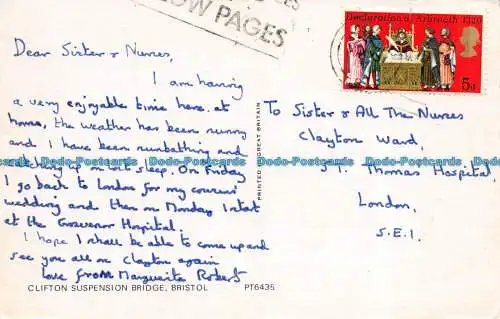 YELLOW PAGES
Declaration of Arbroath 1320
5d
Dear Sister & Nurses,
I am having
a very enjoyable time here. at
home, the weather has been sunny
and I have been sunbathing and
catching up on lost sleep. On Friday
I go back to London for my cousins'
wedding and then on Monday I start
at the Grosvenor Hospital.
I hope I shall be able to come up and
see you all on Clayton again
love from Marguerite Roberts
PRINTED IN GREAT BRITAIN
To Sister & All The Nurses
Clayton Ward.
ST. Thomas Hospital,
London,
S.E.1.
Dodo-Postcards Dodo-Postcards Dodo-Postcards Dodo-Postcards
CLIFTON SUSPENSION BRIDGE, BRISTOL PT6435